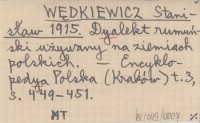 WĘDKIEWICZ Stani-
sław 1915. Dyalekt rumuń-
ski używany na ziemiach
polskich. — Encyklo-
pedya Polska (Kraków) t. 3,
s. 449-451.
MT